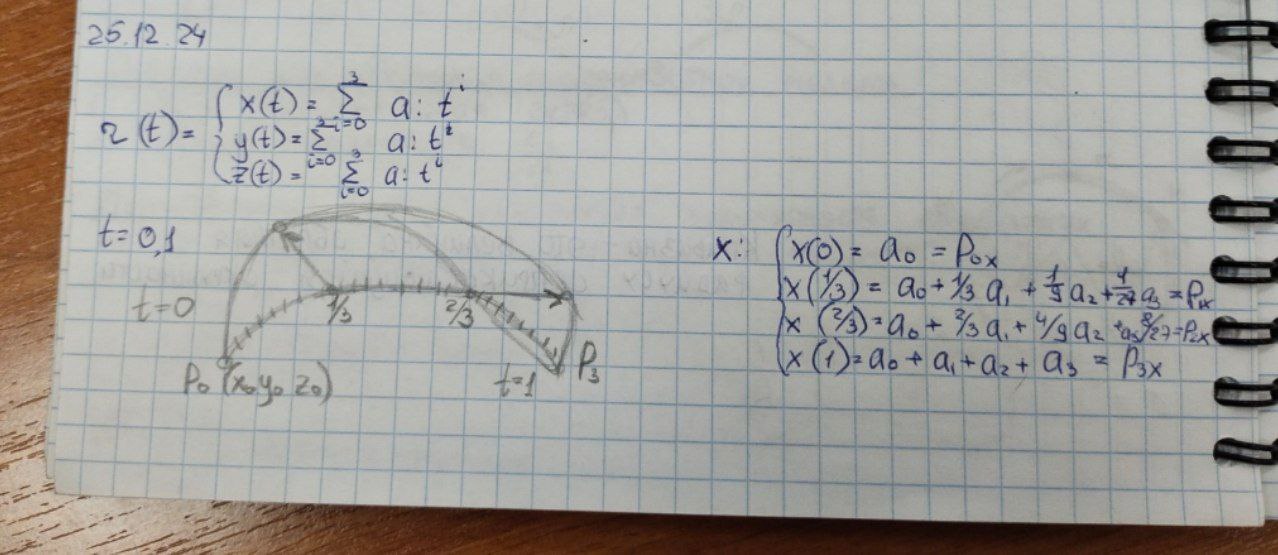 25.12.24
r(t) = { x(t) = ∑_{i=0}^{3} aᵢ tⁱ
y(t) = ∑_{i=0}^{3} aᵢ tⁱ
z(t) = ∑_{i=0}^{3} aᵢ tⁱ
t = 0,1
t = 0
1/3
2/3
P₀ (x₀ y₀ z₀)
t=1
P₃
x: { x(0) = a₀ = P₀ₓ
x(1/3) = a₀ + 1/3 a₁ + 1/9 a₂ + 1/27 a₃ = P₁ₓ
x (2/3) = a₀ + 2/3 a₁ + 4/9 a₂ + a₃ 8/27 = P₂ₓ
x(1) = a₀ + a₁ + a₂ + a₃ = P₃ₓ